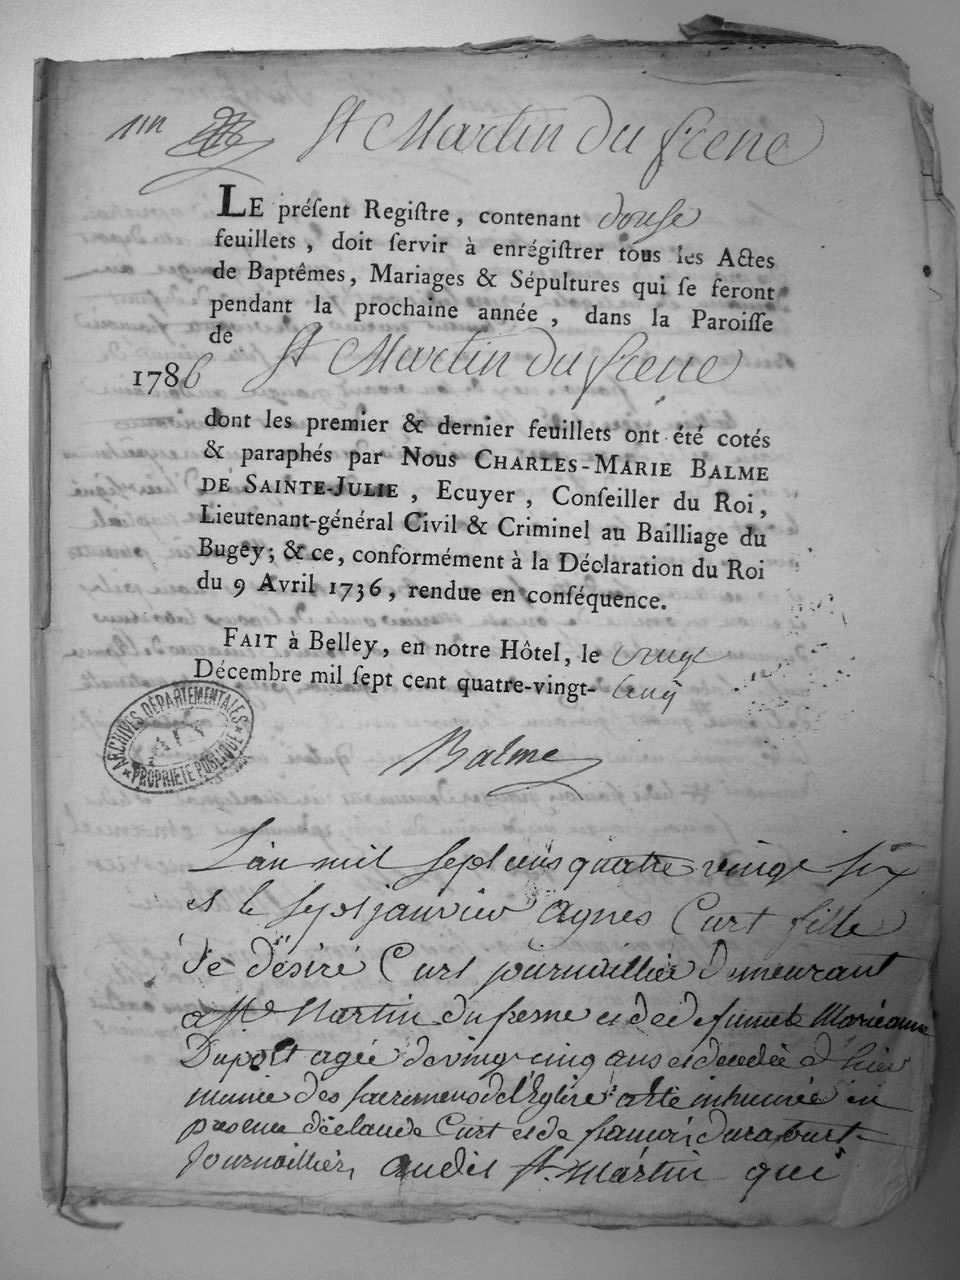 St Martin du frene
LE préſent Regiſtre, contenant douse
feuillets, doit ſervir à enrégiſtrer tous les Actes
de Baptêmes, Mariages & Sépultures qui ſe feront
pendant la prochaine année, dans la Paroiſſe
de St Martin du frene
1786
dont les premier & dernier feuillets ont été cotés
& paraphés par Nous CHARLES-MARIE BALME
DE SAINTE-JULIE, Ecuyer, Conſeiller du Roi,
Lieutenant-général Civil & Criminel au Bailliage du
Bugey; & ce, conformément à la Déclaration du Roi
du 9 Avril 1736, rendue en conſéquence.
FAIT à Belley, en notre Hôtel, le
Décembre mil ſept cent quatre-vingt- cinq
ARCHIVES DÉPARTEMENTALES
* PROPRIÉTÉ PUBLIQUE *
AIN
Balme
L'an mil sept cens quatre vingt six
et le sept janvier agnes Curt fille
de désiré Curt journaillier demeurant
a St Martin du frene et de defunte Marieanne
Duport agée de vingt cinq ans et decedée d'hier
munie des sacremens de l'Eglise a eté inhumée en
presence de claude Curt et de
journaillier, audit St. martin qui